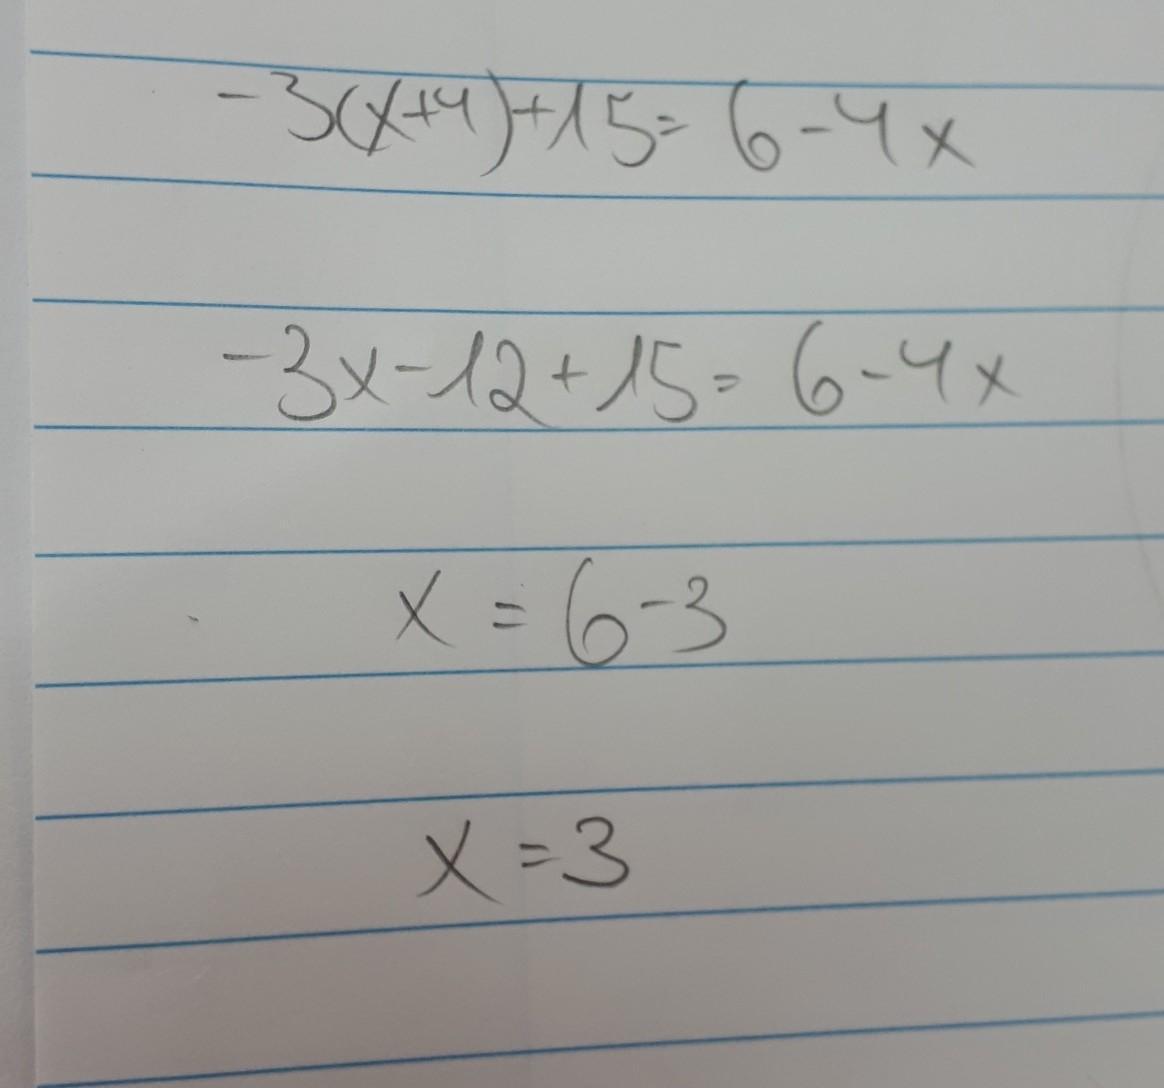 -3(x+4)+15= 6-4x
-3x-12+15= 6-4x
x = 6-3
x =3